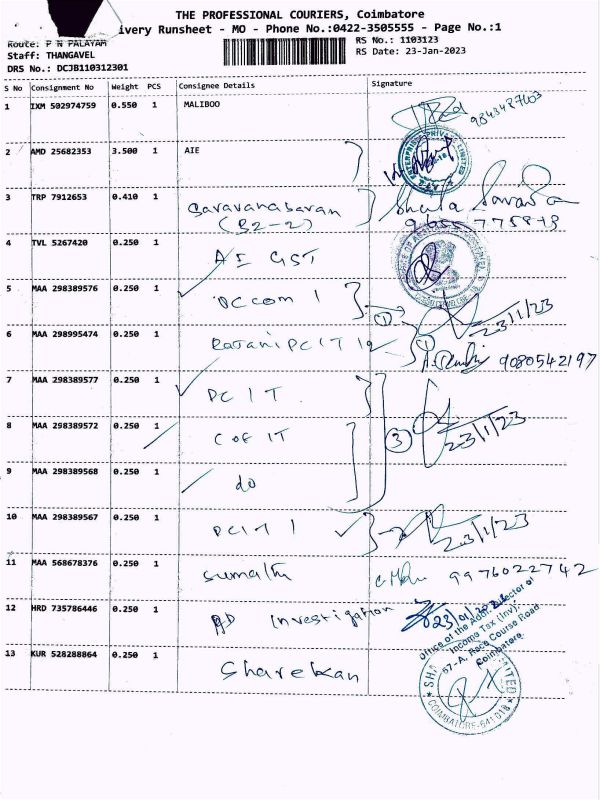 THE PROFESSIONAL COURIERS, Coimbatore
ivery Runsheet - MO - Phone No.:0422-3505555 - Page No.:1
Route: P N PALAYAM
RS No.: 1103123
Staff: THANGAVEL
RS Date: 23-Jan-2023
DRS No.: DCJB110312301
S No Consignment No Weight PCS Consignee Details Signature
1 IXM 502974759 0.550 1 MALIBOO
2 AMD 25682353 3.500 1 AIE
ENTERPRISE PRIVATE LIMITED
3 TRP 7912653 0.410 1 Saravanabavan
(B2-2)
4 TVL 5267420 0.250 1 AE GST
5 MAA 298389576 0.250 1 PCCOM 1
1
23/1/23
6 MAA 298995474 0.250 1 Rajani PC IT
1
9080542197
7 MAA 298389577 0.250 1 PC IT
8 MAA 298389572 0.250 1 C OF IT
3
23/1/23
9 MAA 298389568 0.250 1 do
10 MAA 298389567 0.250 1 PCIT 1
23/1/23
11 MAA 568678376 0.250 1 Sumathi
9976022742
12 HRD 735786446 0.250 1 AD Investigation
23/01/2023
Office of the Addl. Director of
Income Tax (Inv).
67-A, Race Course Road
Coimbatore.
13 KUR 528288864 0.250 1 Sharekan
COIMBATORE-641 018